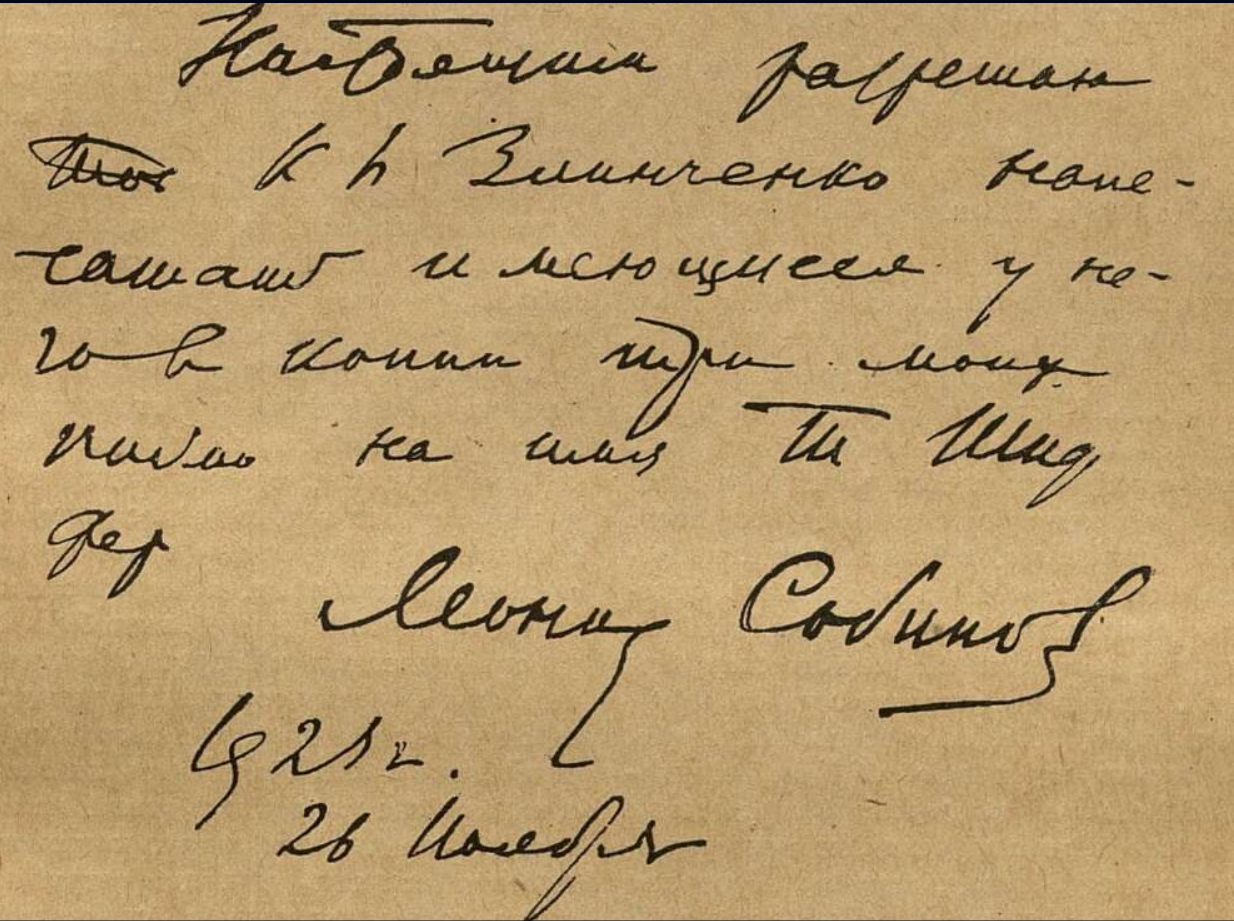 Настоящим разрешаю
К П Злинченко напе-
чатать имеющиеся у не-
го в копии три моих
письма на имя Т Шид
фер
Леонид Собинов
1921 г.
26 Ноября